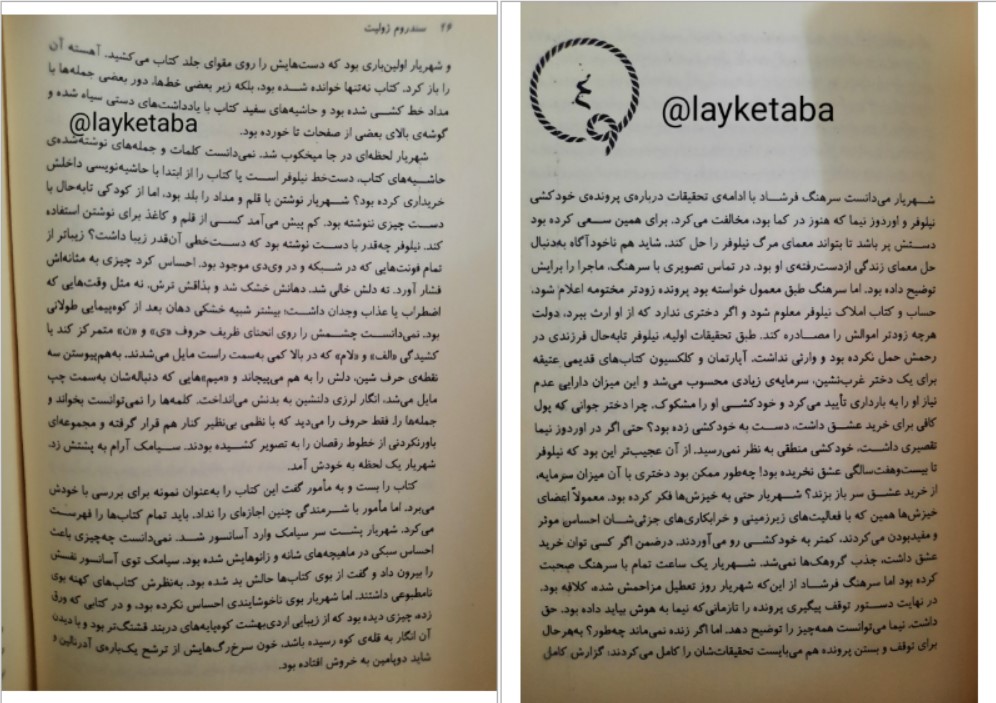 @layketaba
شهریار می‌دانست سرهنگ فرشاد با ادامه‌ی تحقیقات درباره‌ی پرونده‌ی خودکشی
نیلوفر و اوردوز نیما که هنوز در کما بود، مخالفت می‌کرد. برای همین سعی کرده بود
دستش پر باشد تا بتواند معمای مرگ نیلوفر را حل کند. شاید هم ناخودآگاه به‌دنبال
حل معمای زندگی ازدست‌رفته‌ی او بود. در تماس تصویری با سرهنگ، ماجرا را برایش
توضیح داده بود. اما سرهنگ طبق معمول خواسته بود پرونده زودتر مختومه اعلام شود،
حساب و کتاب املاک نیلوفر معلوم شود و اگر دختری ندارد که از او ارث ببرد، دولت
هرچه زودتر اموالش را مصادره کند. طبق تحقیقات اولیه، نیلوفر تابه‌حال فرزندی در
رحمش حمل نکرده بود و وارثی نداشت. آپارتمان و کلکسیون کتاب‌های قدیمی عتیقه
برای یک دختر غرب‌نشین، سرمایه‌ی زیادی محسوب می‌شد و این میزان دارایی عدم
نیاز او را به بارداری تأیید می‌کرد و خودکشی او را مشکوک. چرا دختر جوانی که پول
کافی برای خرید عشق داشت، دست به خودکشی زده بود؟ حتی اگر در اوردوز نیما
تقصیری داشت، خودکشی منطقی به نظر نمی‌رسید. از آن عجیب‌تر این بود که نیلوفر
تا بیست‌وهفت‌سالگی عشق نخریده بود! چه‌طور ممکن بود دختری با آن میزان سرمایه،
از خرید عشق سر باز بزند؟ شهریار حتی به خیزش‌ها فکر کرده بود. معمولاً اعضای
خیزش‌ها همین که با فعالیت‌های زیرزمینی و خرابکاری‌های جزئی‌شان احساس موثر
و مفیدبودن می‌کردند، کمتر به خودکشی رو می‌آوردند. درضمن اگر کسی توان خرید
عشق داشت، جذب گروهک‌ها نمی‌شد. شهریار یک ساعت تمام با سرهنگ صحبت
کرده بود اما سرهنگ فرشاد از این‌که شهریار روز تعطیل مزاحمش شده، کلافه بود.
در نهایت دستور توقف پیگیری پرونده را تازمانی‌که نیما به هوش بیاید داده بود. حق
داشت. نیما می‌توانست همه‌چیز را توضیح دهد. اما اگر زنده نمی‌ماند چه‌طور؟ به‌هرحال
برای توقف و بستن پرونده هم می‌بایست تحقیقات‌شان را کامل می‌کردند؛ گزارش کامل
سندروم ژولیت
و شهریار اولین‌باری بود که دست‌هایش را روی مقوای جلد کتاب می‌کشید. آهسته آن
را باز کرد. کتاب نه‌تنها خوانده شده بود، بلکه زیر بعضی خط‌ها، دور بعضی جمله‌ها با
مداد خط کشی شده بود و حاشیه‌های سفید کتاب با یادداشت‌های دستی سیاه شده و
گوشه‌ی بالای بعضی از صفحات تا خورده بود.
@layketaba
شهریار لحظه‌ای در جا میخکوب شد. نمی‌دانست کلمات و جمله‌های نوشته‌شده‌ی
حاشیه‌های کتاب، دست‌خط نیلوفر است یا کتاب را از ابتدا با حاشیه‌نویسی داخلش
خریداری کرده بود؟ شهریار نوشتن با قلم و مداد را بلد بود، اما از کودکی تابه‌حال با
دست چیزی ننوشته بود. کم پیش می‌آمد کسی از قلم و کاغذ برای نوشتن استفاده
کند. نیلوفر چه‌قدر با دست نوشته بود که دست‌خطی آن‌قدر زیبا داشت؟ زیباتر از
تمام فونت‌هایی که در شبکه و در وی‌دی موجود بود. احساس کرد چیزی به مثانه‌اش
فشار آورد. ته دلش خالی شد. دهانش خشک شد و بذاقش ترش. نه مثل وقت‌هایی که
اضطراب یا عذاب وجدان داشت؛ بیشتر شبیه خشکی دهان بعد از کوه‌پیمایی طولانی
بود. نمی‌دانست چشمش را روی انحنای ظریف حروف «ی» و «ن» متمرکز کند یا
کشیدگی «الف» و «لام» که در بالا کمی به‌سمت راست مایل می‌شدند. به‌هم‌پیوستن سه
نقطه‌ی حرف شین، دلش را به هم می‌پیچاند و «میم»هایی که دنباله‌شان به‌سمت چپ
مایل می‌شد، انگار لرزی دلنشین به بدنش می‌انداخت. کلمه‌ها را نمی‌توانست بخواند و
جمله‌ها را. فقط حروف را می‌دید که با نظمی بی‌نظیر کنار هم قرار گرفته و مجموعه‌ای
باورنکردنی از خطوط رقصان را به تصویر کشیده بودند. سیامک آرام به پشتش زد.
شهریار یک لحظه به خودش آمد.
کتاب را بست و به مأمور گفت این کتاب را به‌عنوان نمونه برای بررسی با خودش
می‌برد. اما مأمور با شرمندگی چنین اجازه‌ای را نداد. باید تمام کتاب‌ها را فهرست
می‌کرد. شهریار پشت سر سیامک وارد آسانسور شد. نمی‌دانست چه‌چیزی باعث
احساس سبکی در ماهیچه‌های شانه و زانوهایش شده بود. سیامک توی آسانسور نفسش
را بیرون داد و گفت از بوی کتاب‌ها حالش بد شده بود. به‌نظرش کتاب‌های کهنه بوی
نامطبوعی داشتند. اما شهریار بوی ناخوشایندی احساس نکرده بود، و در کتابی که ورق
زده، چیزی دیده بود که از زیبایی اردی‌بهشت کوه‌پایه‌های دربند قشنگ‌تر بود و با دیدن
آن انگار به قله‌ی کوه رسیده باشد، خون سرخ‌رگ‌هایش از ترشح یک‌باره‌ی آدرنالین و
شاید دوپامین به خروش افتاده بود.